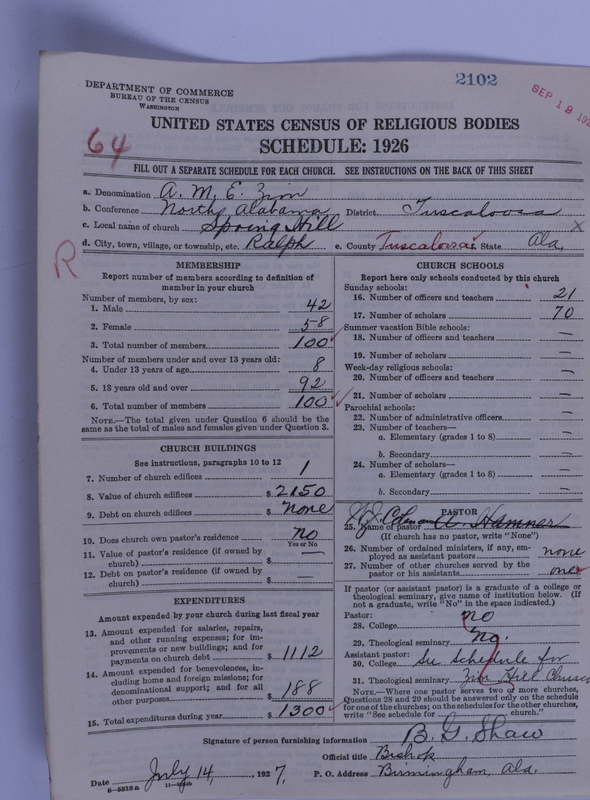 2102
SEP 19 192
DEPARTMENT OF COMMERCE
BUREAU OF THE CENSUS
WASHINGTON
UNITED STATES CENSUS OF RELIGIOUS BODIES
64
SCHEDULE: 1926
FILL OUT A SEPARATE SCHEDULE FOR EACH CHURCH. SEE INSTRUCTIONS ON THE BACK OF THIS SHEET
a. Denomination A. M. E. Zion
b. Conference North Alabama District Tuscaloosa
c. Local name of church Spring Hill X
d. City, town, village, or township, etc. Ralph e. County Tuscaloosa State Ala.
R
MEMBERSHIP
Report number of members according to definition of
member in your church
Number of members, by sex:
1. Male 42
2. Female 58
3. Total number of members 100
Number of members under and over 13 years old:
4. Under 13 years of age 8
5. 13 years old and over 92
6. Total number of members 100
NOTE.—The total given under Question 6 should be
the same as the total of males and females given under Question 3.
CHURCH BUILDINGS
See instructions, paragraphs 10 to 12
7. Number of church edifices 1
8. Value of church edifices $ 2150
9. Debt on church edifices $ None
10. Does church own pastor's residence? no
Yes or No
11. Value of pastor's residence (if owned by
church) $ —
12. Debt on pastor's residence (if owned by
church) $ —
EXPENDITURES
Amount expended by your church during last fiscal year
13. Amount expended for salaries, repairs,
and other running expenses; for im-
provements or new buildings; and for
payments on church debt $ 1112
14. Amount expended for benevolences, in-
cluding home and foreign missions; for
denominational support; and for all
other purposes $ 188
15. Total expenditures during year $ 1300
CHURCH SCHOOLS
Report here only schools conducted by this church
Sunday schools:
16. Number of officers and teachers 21
17. Number of scholars 70
Summer vacation Bible schools:
18. Number of officers and teachers —
19. Number of scholars —
Week-day religious schools:
20. Number of officers and teachers —
21. Number of scholars —
Parochial schools:
22. Number of administrative officers —
23. Number of teachers—
a. Elementary (grades 1 to 8) —
b. Secondary —
24. Number of scholars—
a. Elementary (grades 1 to 8) —
b. Secondary —
PASTOR
25. Name of pastor A. Hamner
(If church has no pastor, write "None")
26. Number of ordained ministers, if any, em-
ployed as assistant pastors none
27. Number of other churches served by the
pastor or his assistants one
If pastor (or assistant pastor) is a graduate of a college or
theological seminary, give name of institution below. (If
not a graduate, write "No" in the space indicated.)
Pastor:
28. College no
29. Theological seminary no.
Assistant pastor:
30. College See schedule for
31. Theological seminary Zion Hill Church
NOTE.—Where one pastor serves two or more churches,
Questions 28 and 29 should be answered only on the schedule
for one of the churches; on the schedules for the other churches,
write "See schedule for church."
Signature of person furnishing information B. G. Shaw
Official title Bishop
Date July 14, 1927. P. O. Address Birmingham, Ala.